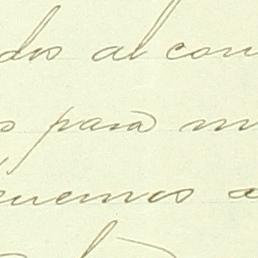 dos al con
s para m
quemos a